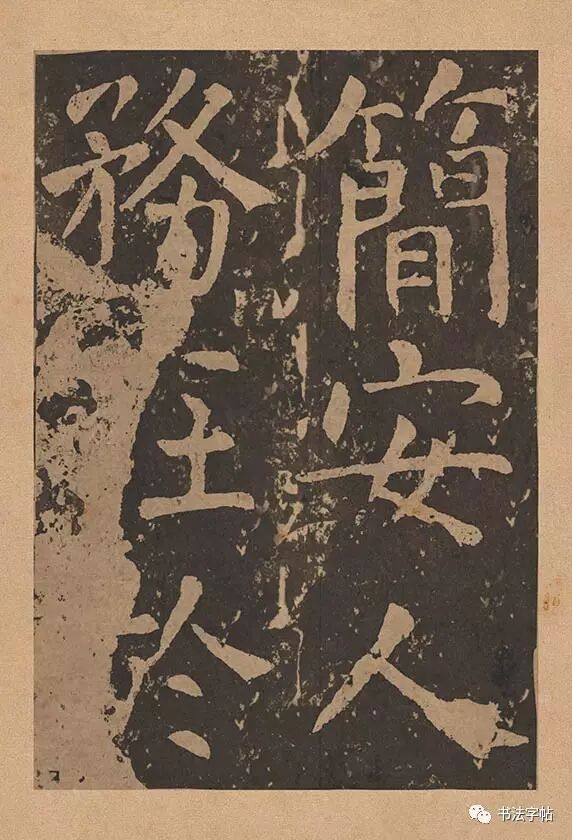 簡安人
務主於
书法字帖